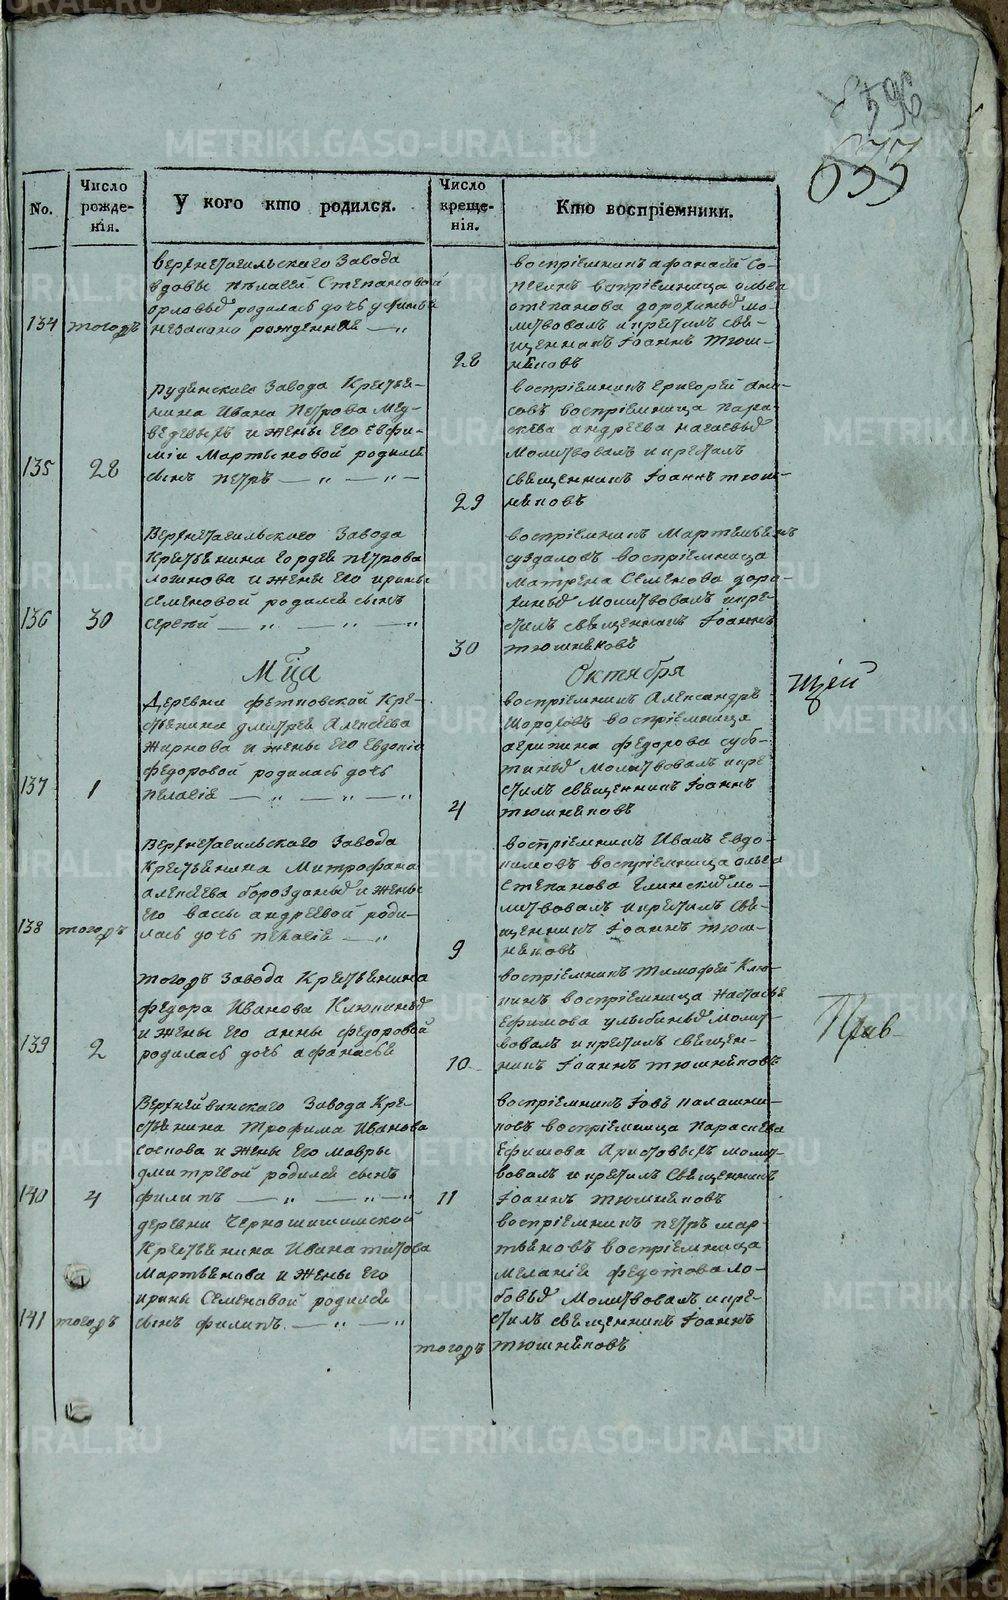 596
633
No.
Число рожде-нія.
У кого кто родился.
Число креще-нія.
Кто воспріемники.
134
тогожъ
верхнетагильскаго Завода
вдовы Пелагеи Степановой
орловы родилась дочь
незаконно рожденная — „
28
воспріемникъ афанасій Со-
воспріемница ольга
степанова дорохиныхъ мо-
литвовалъ и крестилъ свя-
щенникъ Іоаннъ Тюш-
няковъ
135
28
Рудянскаго Завода Крестья-
нина Ивана Петрова Мед-
ведевыхъ и жены его евфи-
міи Мартыновой родился
сынъ петръ — „ — „ —
29
воспріемникъ григорей
совъ воспріемница пара-
скева андреева
молитвовалъ и крестилъ
священникъ Іоаннъ тюш-
няковъ
136
30
Верхнетагильскаго Завода
Крестьянина гордея петрова
логинова и жены его ирины
семеновой родился сынъ
сергей — „ — „ — „
30
воспріемникъ Мартемьянъ
суздаловъ воспріемница
матрена Семенова доро-
хиныхъ молитвовалъ и кре-
стилъ священникъ Іоаннъ
тюшняковъ
Мца
Октября
ищей
137
1
Деревни фетковской Кре-
стьянина дмитрея Алексеева
Жирнова и жены его Евдокіи
федоровой родилась дочь
пелагія — „ — „ — „
4
воспріемникъ Александръ
Шороховъ воспріемница
агрипина федорова субо-
тиныхъ молитвовалъ и кре-
стилъ священникъ Іоаннъ
тюшняковъ
138
тогожъ
Верхнетагильскаго Завода
Крестьянина Митрофана
алексеева броздиныхъ и жены
его васы андреевой роди-
лась дочь пелагія — „
9
воспріемникъ Иванъ Евдо-
кимовъ воспріемница ольга
Степанова Глинскихъ мо-
литвовалъ и крестилъ свя-
щенникъ Іоаннъ тюш-
няковъ
139
2
тогожъ Завода Крестьянина
федора Иванова Клюкиныхъ
и жены его анны федоровой
родилась дочь афанасья
10
воспріемникъ тимофей Клю-
кинъ воспріемница настасья
Ефимова улыбиныхъ молит-
вовалъ и крестилъ священ-
никъ Іоаннъ тюшняковъ
140
4
Верхнейвинскаго Завода Кре-
стьянина Трофима Иванова
соснова и жены его мавры
дмитревой родился сынъ
филипъ — „ — „ — „
11
воспріемникъ Іовъ калашни-
ковъ воспріемница параскева
Ефимова Аристовыхъ молит-
вовалъ и крестилъ Священникъ
Іоаннъ тюшняковъ
141
тогожъ
деревни Черношишимской
Крестьянина Ивана титова
Мартьянова и жены его
ирины Семеновой родился
сынъ филипъ. — „ — „
тогожъ
воспріемникъ петръ мар-
тьяновъ воспріемница
меланія федотова ло-
бовыхъ молитвовалъ и кре-
стилъ священникъ Іоаннъ
тюшняковъ
METRIKI.GASO-URAL.RU